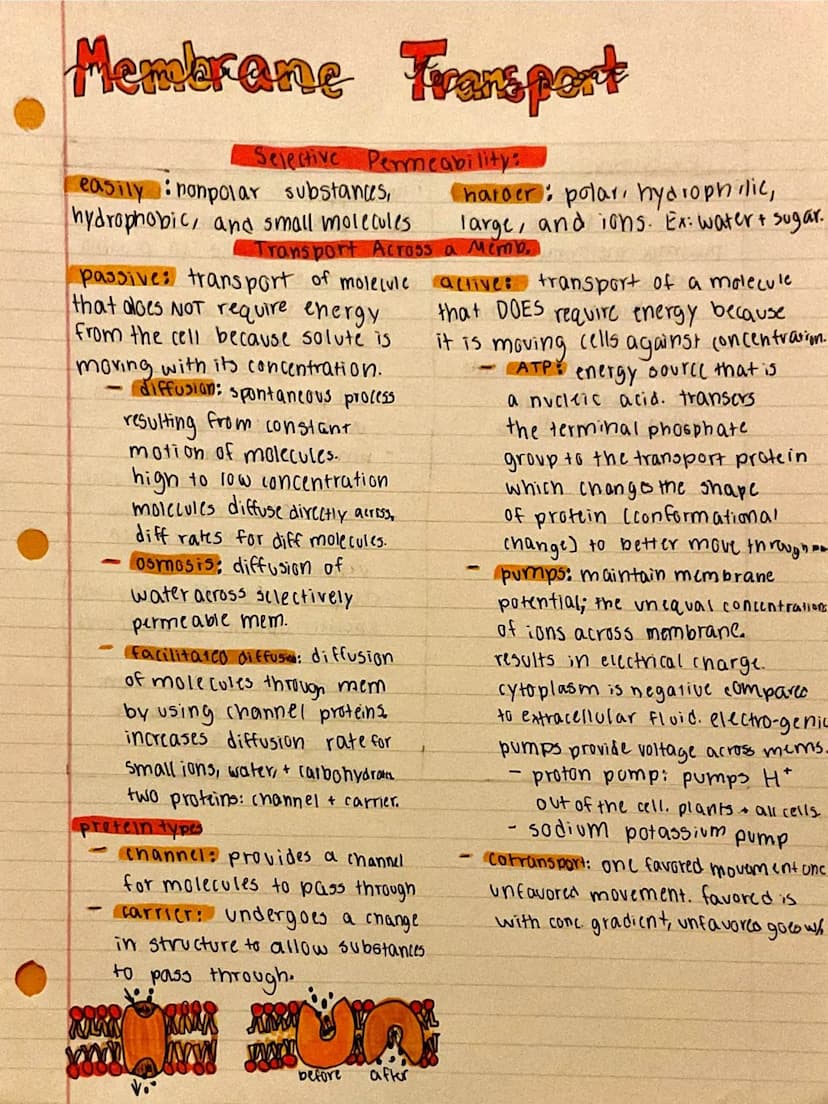 Membrane Transport
Selective Permeability:
easily: nonpolar substances,
hydrophobic, and small molecules
harder: polar, hydrophilic,
large, and ions. Ex: water + sugar.
Transport Across a Memb.
passive: transport of molecule
that does NOT require energy
from the cell because solute is
moving with its concentration.
- diffusion: spontaneous process
resulting from constant
motion of molecules.
high to low concentration
molecules diffuse directly across,
diff rates for diff molecules.
- osmosis: diffusion of
water across selectively
permeable mem.
- facilitated diffusion: diffusion
of molecules through mem
by using channel proteins
increases diffusion rate for
small ions, water, + carbohydrates
two proteins: channel + carrier.
protein types
- channel: provides a channel
for molecules to pass through
- carrier: undergoes a change
in structure to allow substances
to pass through.
before after
active: transport of a molecule
that DOES require energy because
it is moving cells against concentration.
- ATP: energy source that is
a nucleic acid. transers
the terminal phosphate
group to the transport protein
which changes the shape
of protein (conformational
change) to better move through
- pumps: maintain membrane
potential; the unequal concentrations
of ions across membrane.
results in electrical charge.
cytoplasm is negative compared
to extracellular fluid. electro-genic
pumps provide voltage across mems.
- proton pump: pumps H⁺
out of the cell. plants + all cells
- sodium potassium pump
- cotransport: one favored movement one
unfavored movement. favored is
with conc. gradient, unfavored goes w/